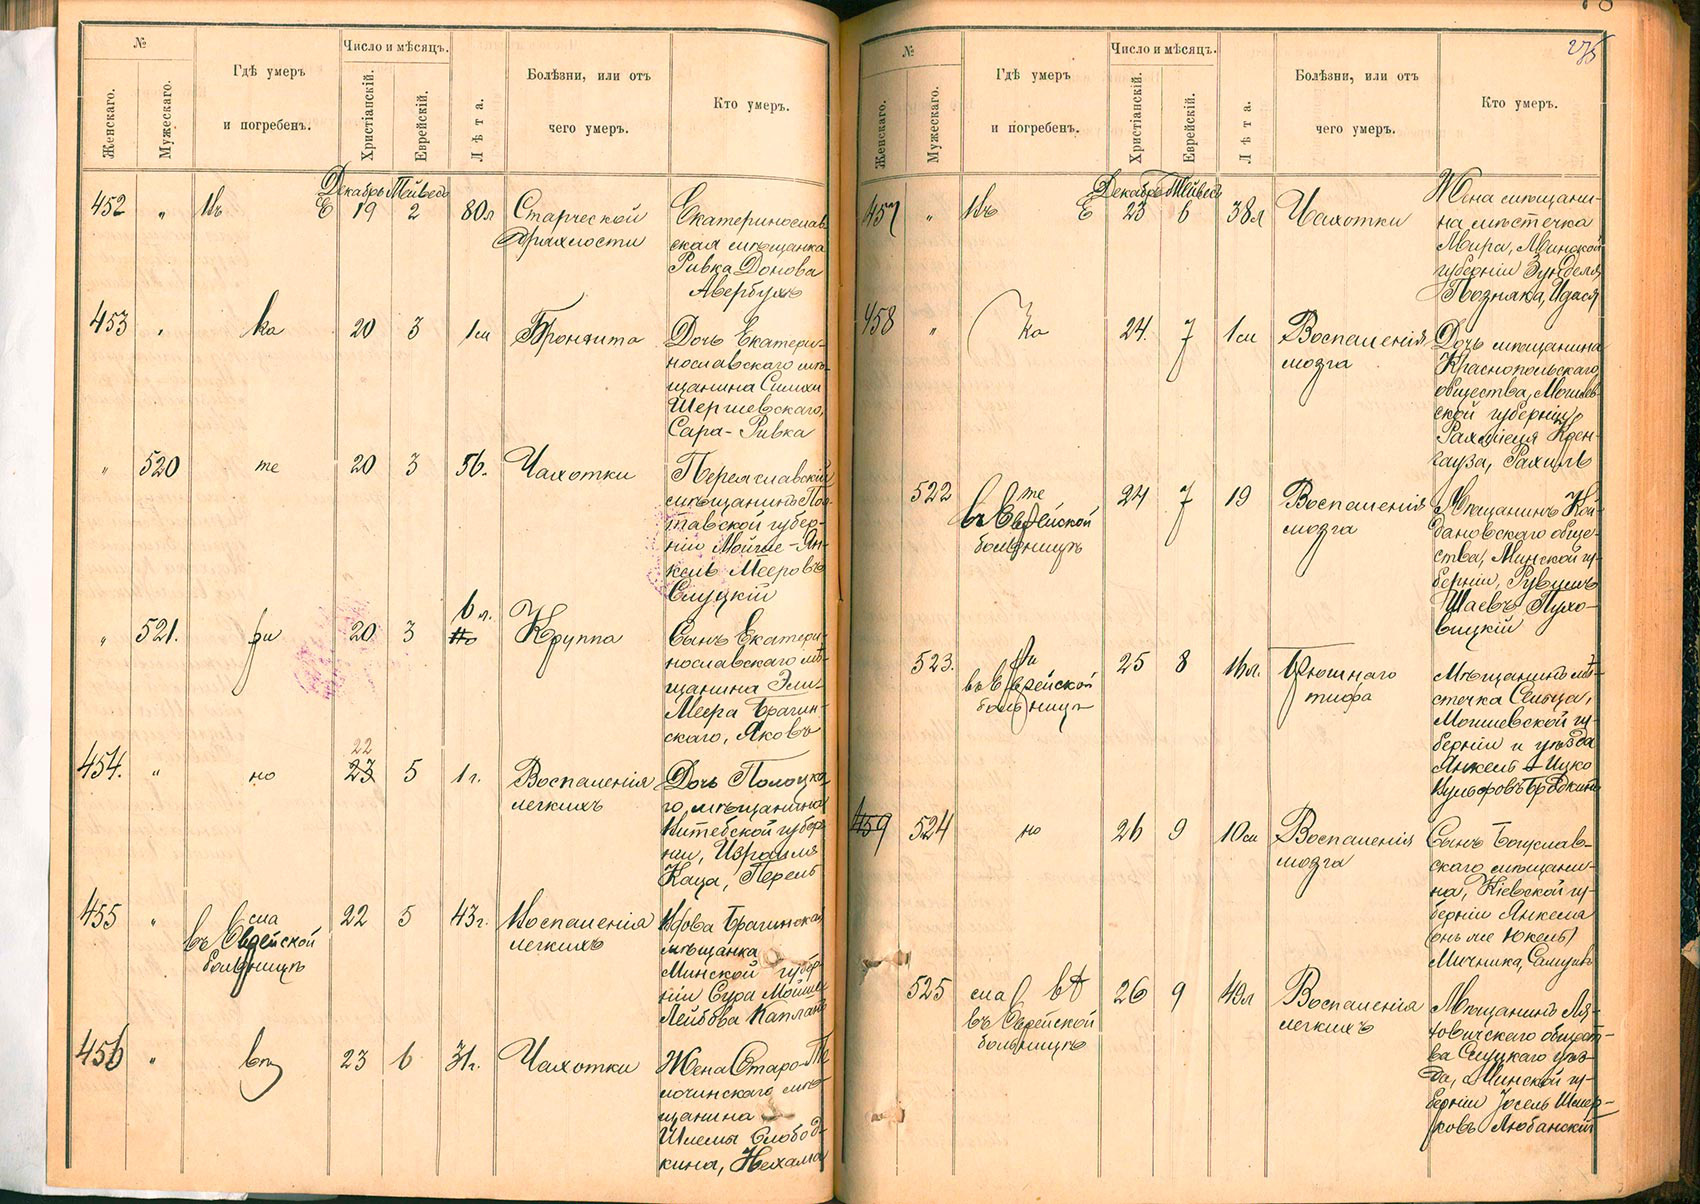 №
Женскаго.
Мужескаго.
Гдѣ умеръ
и погребенъ.
Число и мѣсяцъ.
Христіанскій.
Еврейскій.
Лѣта.
Болѣзни, или отъ
чего умеръ.
Кто умеръ.
Декабрь Тейвесъ
452 " 19 2 80л
Старческой
дряхлости
Екатеринослав-
ская мѣщанка
Ривка
Авербухъ
453 " 20 3 1м
Бронхита
Дочь Екатери-
нославскаго мѣ-
щанина Симхи
Шершевскаго,
Сара-Ривка
" 520 те 20 3 56.
Чахотки
Переяславскій
мѣщанинъ Пол-
тавской губер-
ніи Мойше-Ян-
кель Мееровъ
Слуцкій
" 521. 20 3
6 л.
Круппа
Сынъ Екатери-
нославскаго мѣ-
щанина Эли-
Меера Брагин-
скаго, Яковъ
22
454. " но 23 5 1г.
Воспаленія
легкихъ
Дочь Полоцка-
го, мѣщанина
Витебской губер-
ніи, Израиля
Каца, Перель
455 " 22 5 43г.
въ Еврейской
больницѣ
Воспаленія
легкихъ
Вдова Брагинская
мѣщанка
Минской губер-
ніи Сура Мойше
Лейбова Капланъ
456 " 23 6 31г.
Чахотки
Жена Старо-
щанина
Шлемы Слобод-
кина, Нехама
275
№
Женскаго.
Мужескаго.
Гдѣ умеръ
и погребенъ.
Число и мѣсяцъ.
Христіанскій.
Еврейскій.
Лѣта.
Болѣзни, или отъ
чего умеръ.
Кто умеръ.
Декабрь Тейвесъ
457 " 23 6 38л
Чахотки
Жена мѣщани-
на мѣстечка
Мира, Минской
губерніи Зунделя
Позняка, Идася
458 " 24. 7 1м
Воспаленія
мозга
Дочь мѣщанина
Краснопольскаго
общества, Могилев-
ской губерніи,
Рахмiеля Крен-
гауза, Рахиль
522 те 24 7 19
въ Еврейской
больницѣ
Воспаленія
мозга
Мѣщанинъ Кой-
дановскаго обще-
ства, Минской гу-
берніи, Рувинъ
Шаевъ Пухо-
вицкій
523. 25 8 16л.
въ Еврейской
больницѣ
Брюшнаго
тифа
Мѣщанинъ мѣ-
стечка
Могилевской гу-
берніи и уѣзда
Янкель-Ицко
Бродкинъ
459 524 но 26 9 10м
Воспаленія
мозга
Сынъ Богуслав-
скаго мѣщани-
на, Кіевской гу-
берніи Янкеля
(онъ же Юкель)
Мичника, Самуилъ
525 26 9 49л
въ Еврейской
больницѣ
Воспаленія
легкихъ
Мѣщанинъ Ля-
ховичскаго общест-
ва Слуцкаго уѣз-
да, Минской гу-
берніи Іосель Шмер-
ковъ Любанскій